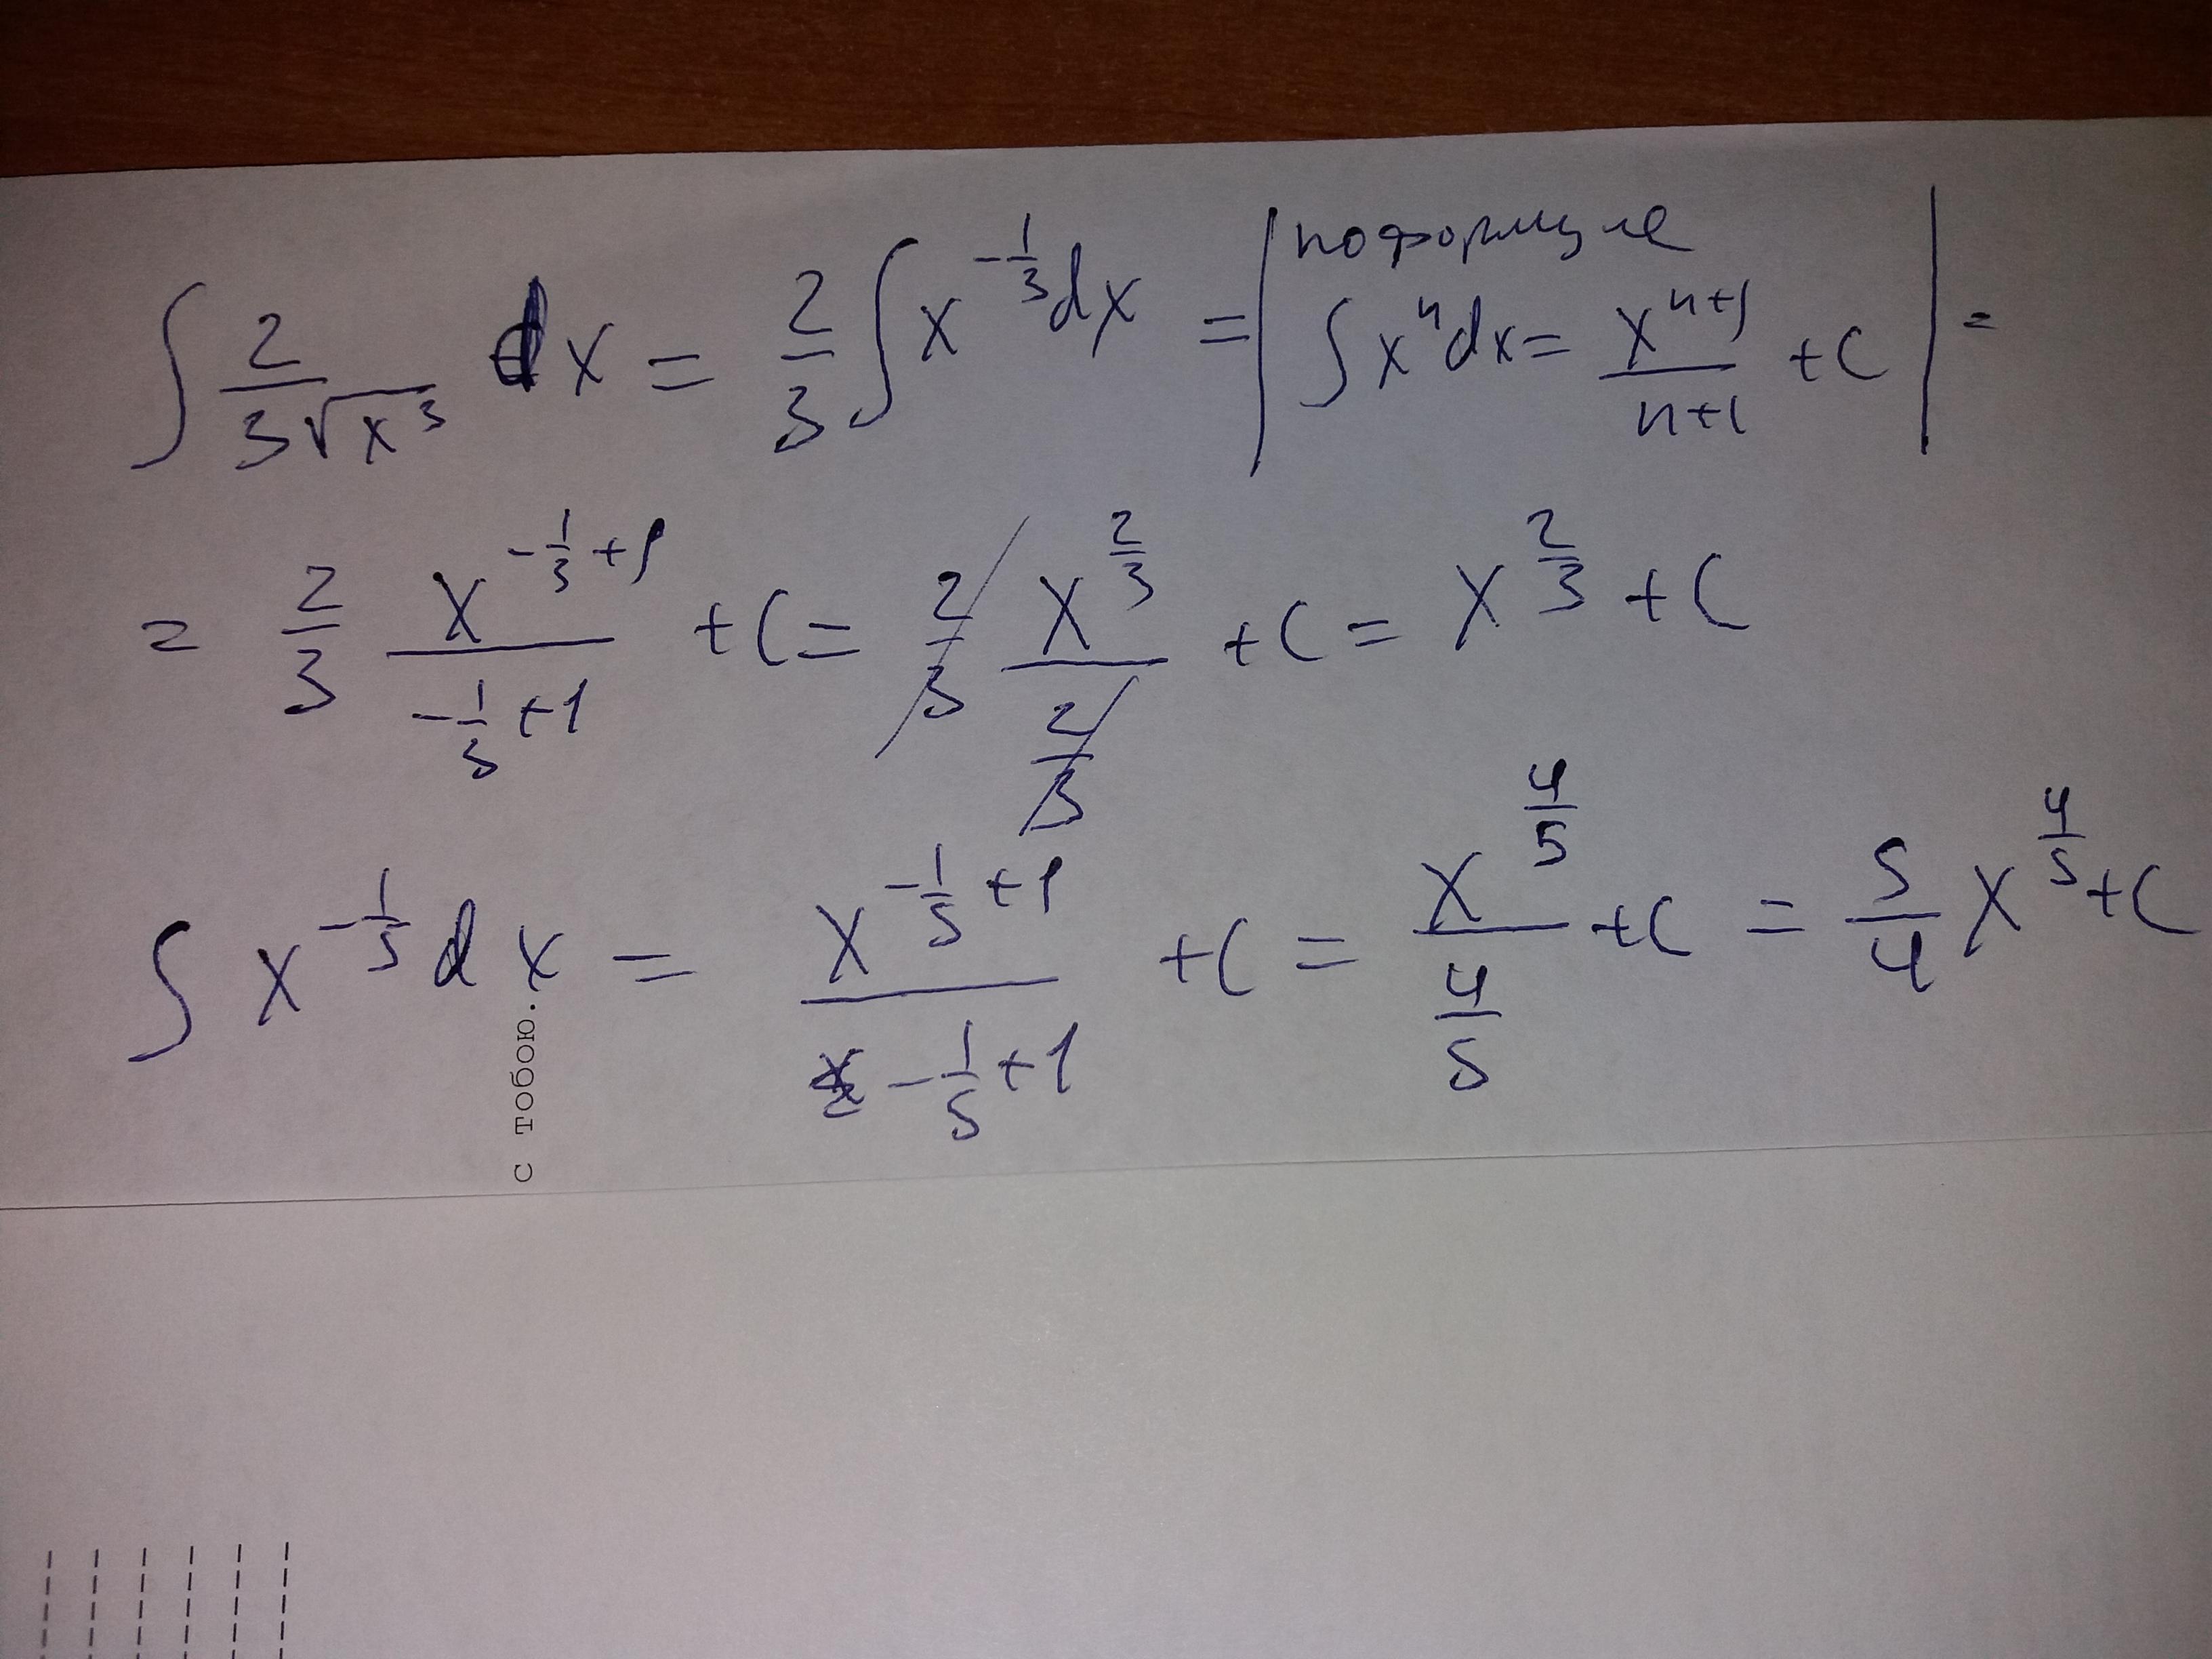 ∫ 2/(3√x³) dx = 2/3 ∫ x^(-1/3) dx = | по формуле ∫ xⁿ dx = x^(n+1)/(n+1) + C | =
= 2/3 x^(-1/3+1)/(-1/3+1) + C = 2/3 x^(2/3)/(2/3) + C = x^(2/3) + C
∫ x^(-1/5) dx = x^(-1/5+1)/(-1/5+1) + C = x^(4/5)/(4/5) + C = 5/4 x^(4/5) + C
с тобою.